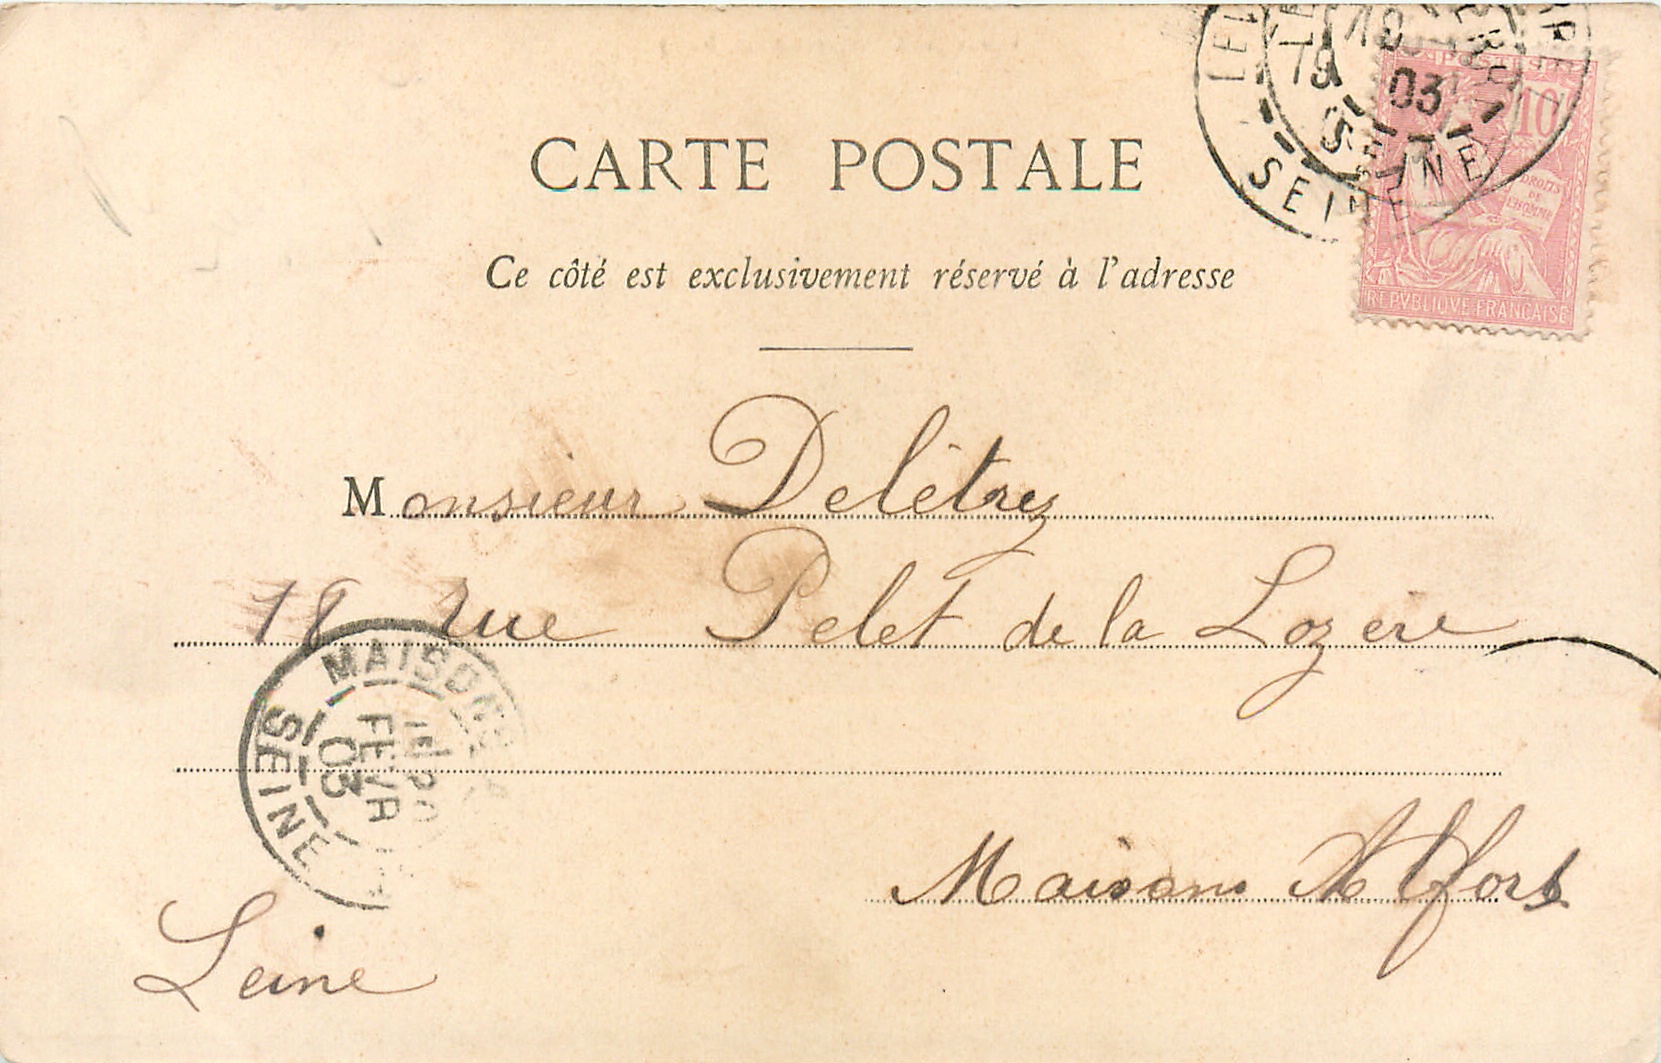 CARTE POSTALE
Ce côté est exclusivement réservé à l'adresse
POSTES
10
DROITS
DE
L'HOMME
REPVBLIQVE FRANÇAISE
03
SEINE
SEINE
Monsieur Delêtrez
18 rue Pelet de la Lozère
MAISONS
FEVR
03
SEINE
Maisons Alfort
Seine